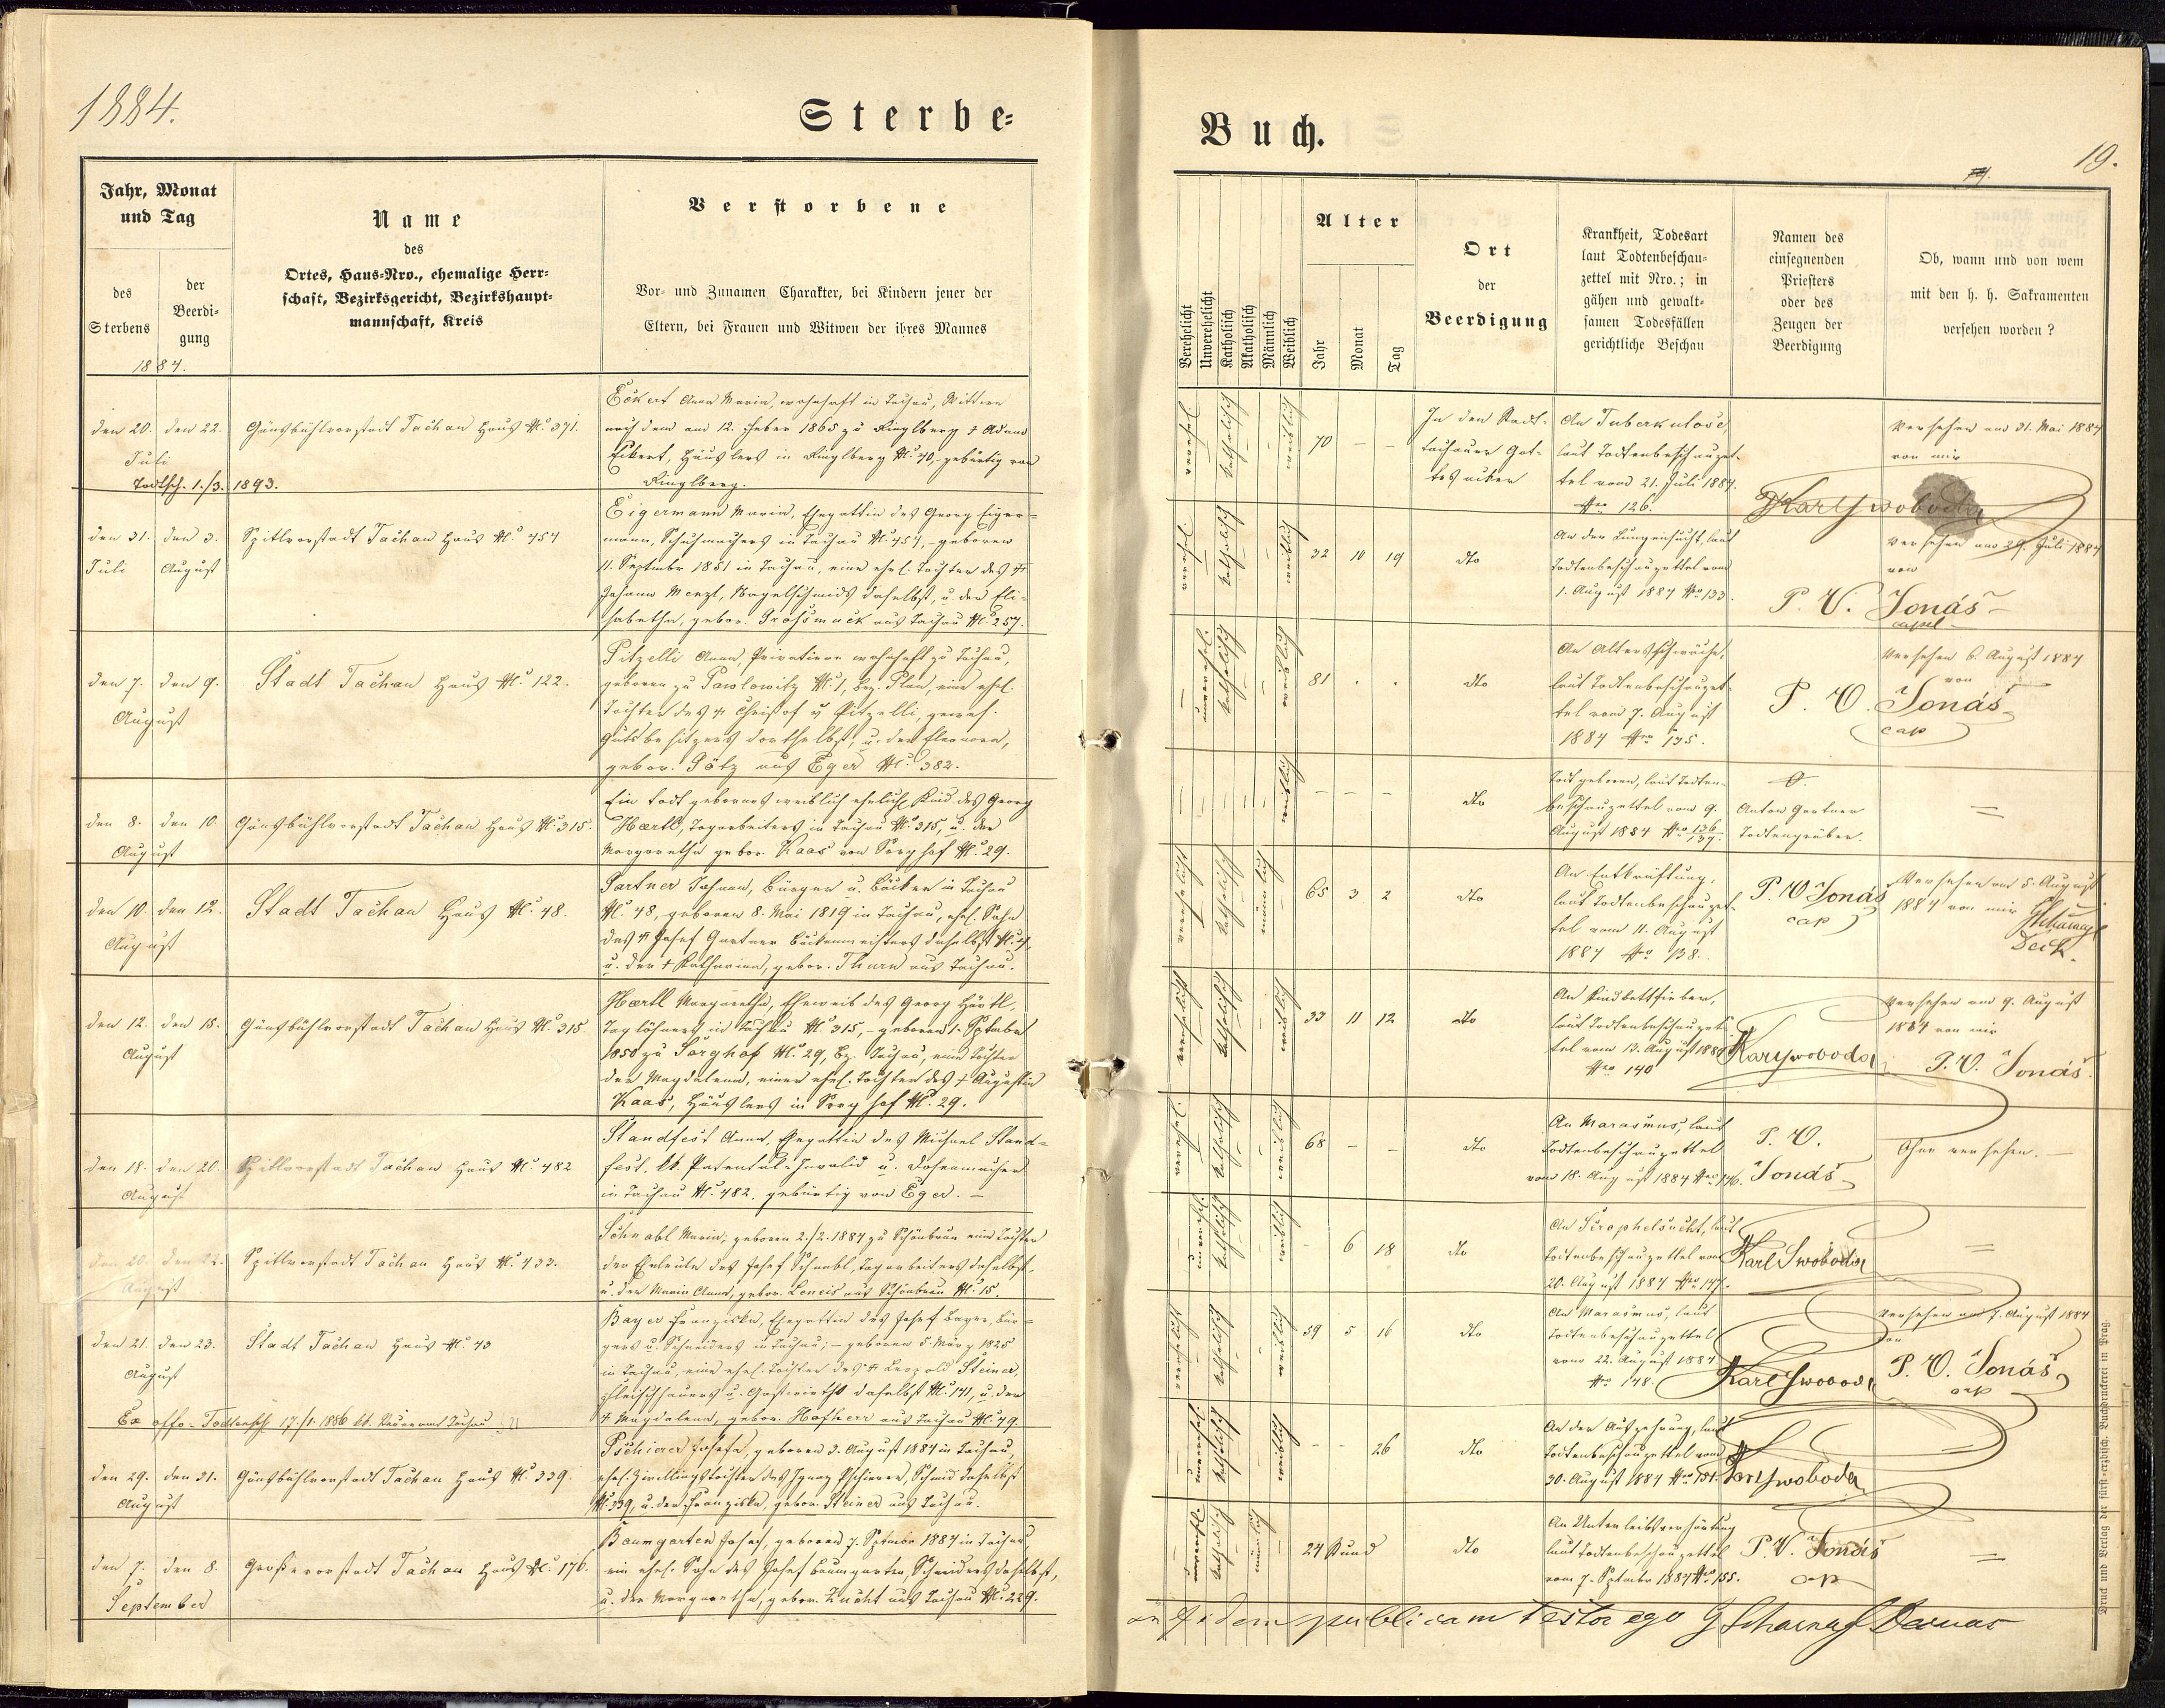 1884.
Sterbe=
Jahr, Monat
und Tag
des
Sterbens
der
Beerdi=
gung
1884.
Name
des
Ortes, Haus=Nro., ehemalige Herr=
schaft, Bezirksgericht, Bezirkshaupt=
mannschaft, Kreis
Verstorbene
Vor= und Zunamen Charakter, bei Kindern jener der
Eltern, bei Frauen und Witwen der ihres Mannes
den 20. den 22. Gänsbühlvorstadt Tachau Haus No. 371.
Juli
Todtsch. 1./3. 1893.
Eckert Anna Maria, wohnhaft in Tachau, Wittwe
nach dem am 12. Feber 1865 zu Ringlberg † Adam
Eckert, Häuslers in Ringlberg No. 40, gebürtig von
Ringlberg.
den 31. den 3. Spitlvorstadt Tachau Haus No. 454
Juli August
Eigermann Maria, Ehegattin des Georg Eiger=
mann, Schuhmachers in Tachau No. 454, – geboren
11. September 1851 in Tachau, eine ehel. Tochter des †
Johann Menzl, Nagelschmids daselbst, u. der Eli=
sabetha, gebor. Grossmuck aus Tachau No. 257.
den 7. den 9. Stadt Tachau Haus No. 122.
August
Pitzelli Anna, Privatiere wohnhaft zu Tachau,
geboren zu Pawlowitz No. 1, Bez. Plan, eine ehel.
Tochter des † Christof v Pitzelli, gewes.
Gutsbesitzers dortselbst, u. der Eleonora,
gebor. Götz aus Eger No. 382.
den 8. den 10. Gänsbühlvorstadt Tachau Haus No. 315.
August
Ein todt geborenes weiblich eheliches Kind des Georg
Haertl, Tagarbeiters in Tachau No. 315, u. der
Margaretha gebor. Kaas von Sorghof No. 29.
den 10. den 12. Stadt Tachau Haus No. 48.
August
Gartner Johann, Bürger u. Bäcker in Tachau
No. 48, geboren 8. Mai 1819 in Tachau, ehel. Sohn
des † Josef Gartner Bäckermeisters daselbst
u. der † Katharina, gebor. Thurn aus Tachau.
den 12. den 15. Gänsbühlvorstadt Tachau Haus No. 315.
August
Haertl Margaretha, Eheweib des Georg Härtl,
Taglöhners in Tachau No. 315, – geboren 1. Septembr
1850 zu Sorghof No. 29, Bz. Tachau, eine Tochter
der Magdalena, einer ehel. Tochter des † Augustin
Kaas, Häuslers in Sorghof No. 29.
den 18. den 20. Spitlvorstadt Tachau Haus No. 482
August
Standfest Anna, Ehegattin des Michael Stand=
fest, kk. Patental=Invalid u.
in Tachau No. 482. gebürtig von Eger. –
den 20. den 22. Spitlvorstadt Tachau Haus No. 433.
August
Schnabl Maria, geboren 2./2. 1884 zu Schönbrun eine Tochter
der Eheleute des Josef Schnabl, Tagarbeiters daselbst,
u. der Maria Anna, gebor. Leneis aus Schönbrun No. 15.
den 21. den 23. Stadt Tachau Haus No. 43
August
Ex offo=Todtensch. 17./1. 1886
Bayer Franziska, Ehegattin des Josef Bayer, Bür=
gers u. Schneiders in Tachau; – geboren 5 März 1825
in Tachau, eine ehel. Tochter des † Leopold Steiner,
Fleischhauers u. Gastwirths daselbst No. 141, u. der
† Magdalena, gebor. Hofherr aus Tachau No. 49.
den 29. den 31. Gänsbühlvorstadt Tachau Haus No. 339.
August
Pschierer Josefa, geboren 3. August 1884 in Tachau,
ehel. Zwillingstochter des Ignaz Pschierer, Schmid daselbst
No. 339, u. der Franziska, gebor. Steiner aus Tachau.
den 7. den 8. Grossevorstadt Tachau Haus No. 176.
September
Baumgarten Josef, geboren 7. Septembr 1884 in Tachau,
ein ehel. Sohn des Josef Baumgarten, Schneiders daselbst,
u. der Margaretha, gebor. Zucht aus Tachau No. 229.
Buch.
19.
Verehelicht
Unverehelicht
Katholisch
Akatholisch
Männlich
Weiblich
Alter
Jahr
Monat
Tag
Ort
der
Beerdigung
Krankheit, Todesart
laut Todtenbeschau=
zettel mit Nro.; in
gähen und gewalt=
samen Todesfällen
gerichtliche Beschau
Namen des
einsegnenden
Priesters
oder des
Zeugen der
Beerdigung
Ob, wann und von wem
mit den h. h. Sakramenten
versehen worden?
verehel. katholisch weiblich 70 – –
In den Stadt=
tachauer Got=
tesacker
An Tuberkulose,
laut Todtenbeschauzet=
tel vom 21. Juli 1884.
Nro 126.
Versehen am 31. Mai 1884
von mir
Karl Swoboda
verehel. katholisch weiblich 32 10 19 dto
An der Lungensucht, laut
Todtenbeschauzettel vom
1. August 1884 Nro 133.
Versehen am 29. Juli 1884
von
P. V. Jonáš
capel
unverehel. katholisch weiblich 81 . . dto
An Altersschwäche,
laut Todtenbeschauzet=
tel vom 7. August
1884 Nro 135.
Versehen 6. August 1884
von
P. V. Jonáš
cap
weiblich – – – dto
Todt geboren, laut Todten=
beschauzettel vom 9.
August 1884 Nro 136/137.
Anton Gartner
Todtengräber.
verehelicht katholisch männlich 65 3 2 dto
An Entkräftung,
laut Todtenbeschauzet=
tel vom 11. August
1884 Nro 138.
P. V. Jonáš
cap
Versehen am 5. August
1884 von mir
verehelicht katholisch weiblich 33 11 12 dto
An Kindbettfieber,
laut Todtenbeschauzet=
tel vom 13. August 1884
Nro 140
Karl Swoboda
Versehen am 9. August
1884 von mir
P. V. Jonáš.
verehel. katholisch weiblich 68 – dto
An Marasmus, laut
Todtenbeschauzettel
vom 18. August 1884 Nro 146.
P. V.
Jonáš
versehen. –
unverehel. katholisch weiblich – 6 18 dto
An Scrophelsucht, laut
Todtenbeschauzettel vom
20. August 1884 Nro 147.
Karl Swoboda
verehelicht katholisch weiblich 59 5 16 dto
An Marasmus, laut
Todtenbeschauzettel
vom 22. August 1884
Nro 148.
Karl Swoboda
Versehen am 7. August 1884
von
P. V. Jonáš
cap
unverehel. katholisch weiblich – – 26 dto
An der Auszehrung, laut
Todtenbeschauzettel vom
30. August 1884 Nro 151.
Karl Swoboda
unverehel. katholisch männlich 24 Stund dto
An Unterleibsverhärtung
laut Todtenbeschauzettel
vom 7. Septembr 1884 No. 155.
P. V. Jonáš
cap
fidem publicam testor ego
Druck und Verlag der fürst=erzbisch. Buchdruckerei in Prag.